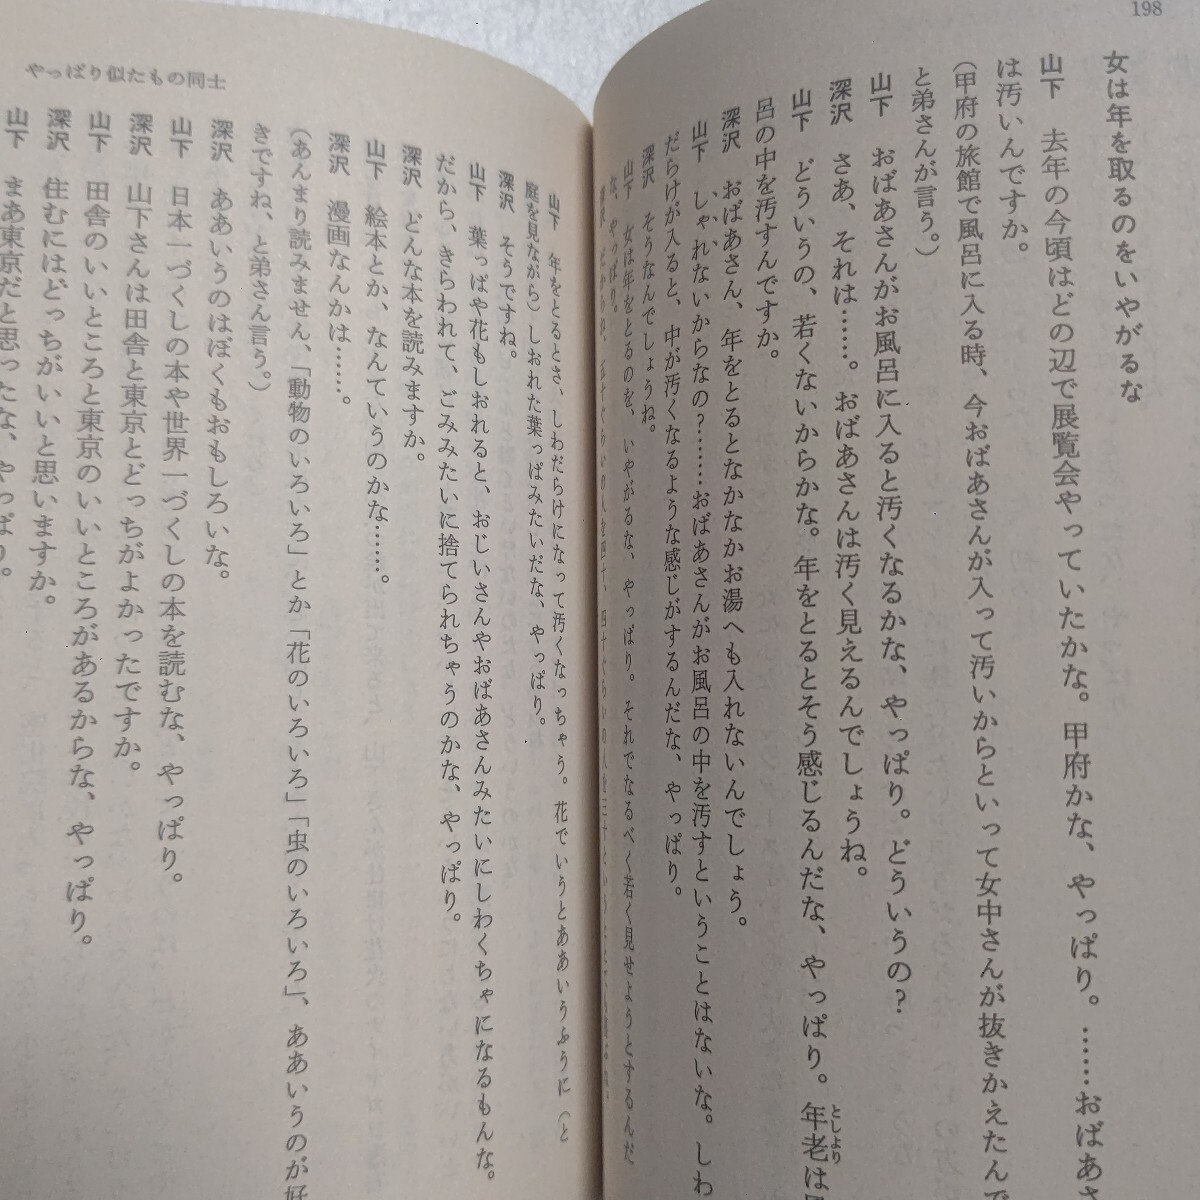 198
女は年を取るのをいやがるな
山下　去年の今頃はどの辺で展覧会やっていたかな。甲府かな、やっぱり。……おばあさ
は汚いんですか。
（甲府の旅館で風呂に入る時、今おばあさんが入って汚いからといって女中さんが抜きかえたんで
と弟さんが言う。）
山下　おばあさんがお風呂に入ると汚くなるかな、やっぱり。どういうの？
深沢　さあ、それは……。おばあさんは汚く見えるんでしょうね。
山下　どういうの、若くないからかな。年をとるとそう感じるんだな、やっぱり。年老は
としより
呂の中を汚すんですか。
深沢　おばあさん、年をとるとなかなかお湯へも入れないんでしょう。
山下　しゃれないからなの？……おばあさんがお風呂の中を汚すということはないな。しわ
だらけが入ると、中が汚くなるような感じがするんだな、やっぱり。
深沢　そうなんでしょうね。
山下　女は年をとるのを、いやがるな、やっぱり。それでなるべく若く見せようとするんだ
な、やっぱり。
やっぱり似たもの同士
山下　年をとるとさ、しわだらけになって汚くなっちゃう。花でいうとああいうふうに（と
庭を見ながら）しおれた葉っぱみたいだな、やっぱり。
深沢　そうですね。
山下　葉っぱや花もしおれると、おじいさんやおばあさんみたいにしわくちゃになるもんな。
だから、きらわれて、ごみみたいに捨てられちゃうのかな、やっぱり。
深沢　どんな本を読みますか。
山下　絵本とか、なんていうのかな……。
深沢　漫画なんかは……。
（あんまり読みません、「動物のいろいろ」とか「花のいろいろ」「虫のいろいろ」、ああいうのが好
きですね、と弟さん言う。）
深沢　ああいうのはぼくもおもしろいな。
山下　日本一づくしの本や世界一づくしの本を読むな、やっぱり。
深沢　山下さんは田舎と東京とどっちがよかったですか。
山下　田舎のいいところと東京のいいところがあるからな、やっぱり。
深沢　住むにはどっちがいいと思いますか。
山下　まあ東京だと思ったな、やっぱり。